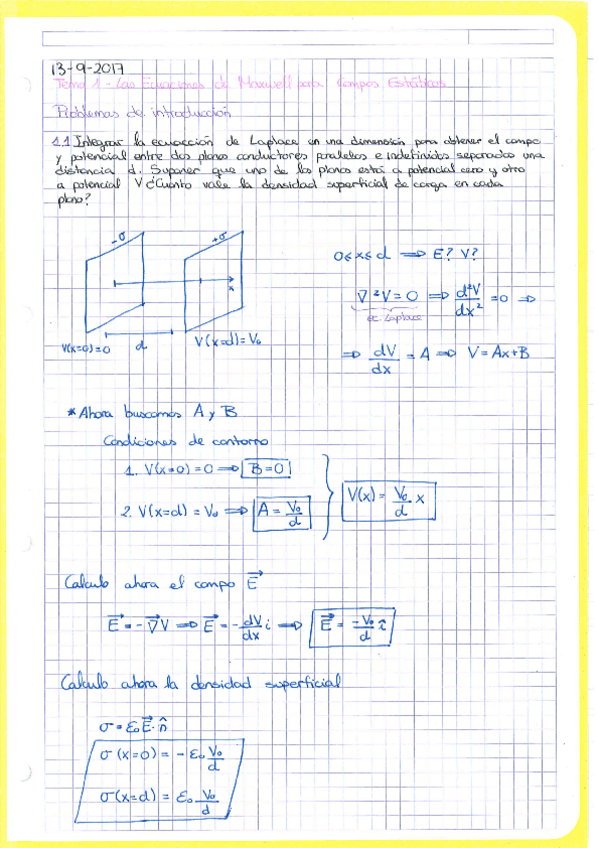 13-9-2017
Tema 1 - Las Ecuaciones de Maxwell para Campos Estáticos
Problemas de introducción
1.1 Integrar la ecuacción de Laplace en una dimensión para obtener el campo
y potencial entre dos planos conductores paralelos e indefinidos separados una
distancia d. Suponer que uno de los planos está a potencial cero y otro
a potencial V ¿Cuánto vale la densidad superficial de carga en cada
plano?
-σ +σ
x
V(x=0)=0 d V(x=d)=V₀
0≤x≤d ⇒ E? V?
∇²V=0 ⇒ d²V/dx² =0 ⇒
ec. Laplace
⇒ dV/dx = A ⇒ V=Ax+B
* Ahora buscamos A y B
Condiciones de contorno
1. V(x=0)=0 ⇒ B=0
2. V(x=d)=V₀ ⇒ A = V₀/d
V(x) = V₀/d x
Calculo ahora el campo E⃗
E⃗ = -∇⃗V ⇒ E⃗ = -dV/dx i ⇒ E⃗ = -V₀/d î
Calculo ahora la densidad superficial
σ = ε₀E⃗·n̂
σ(x=0) = -ε₀ V₀/d
σ(x=d) = ε₀ V₀/d